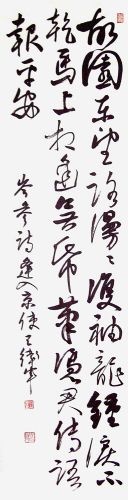 故園東望路漫〻雙袖龍鍾淚不
乾馬上相逢無帋筆憑君傳語
報平安
岑參詩逢入京使